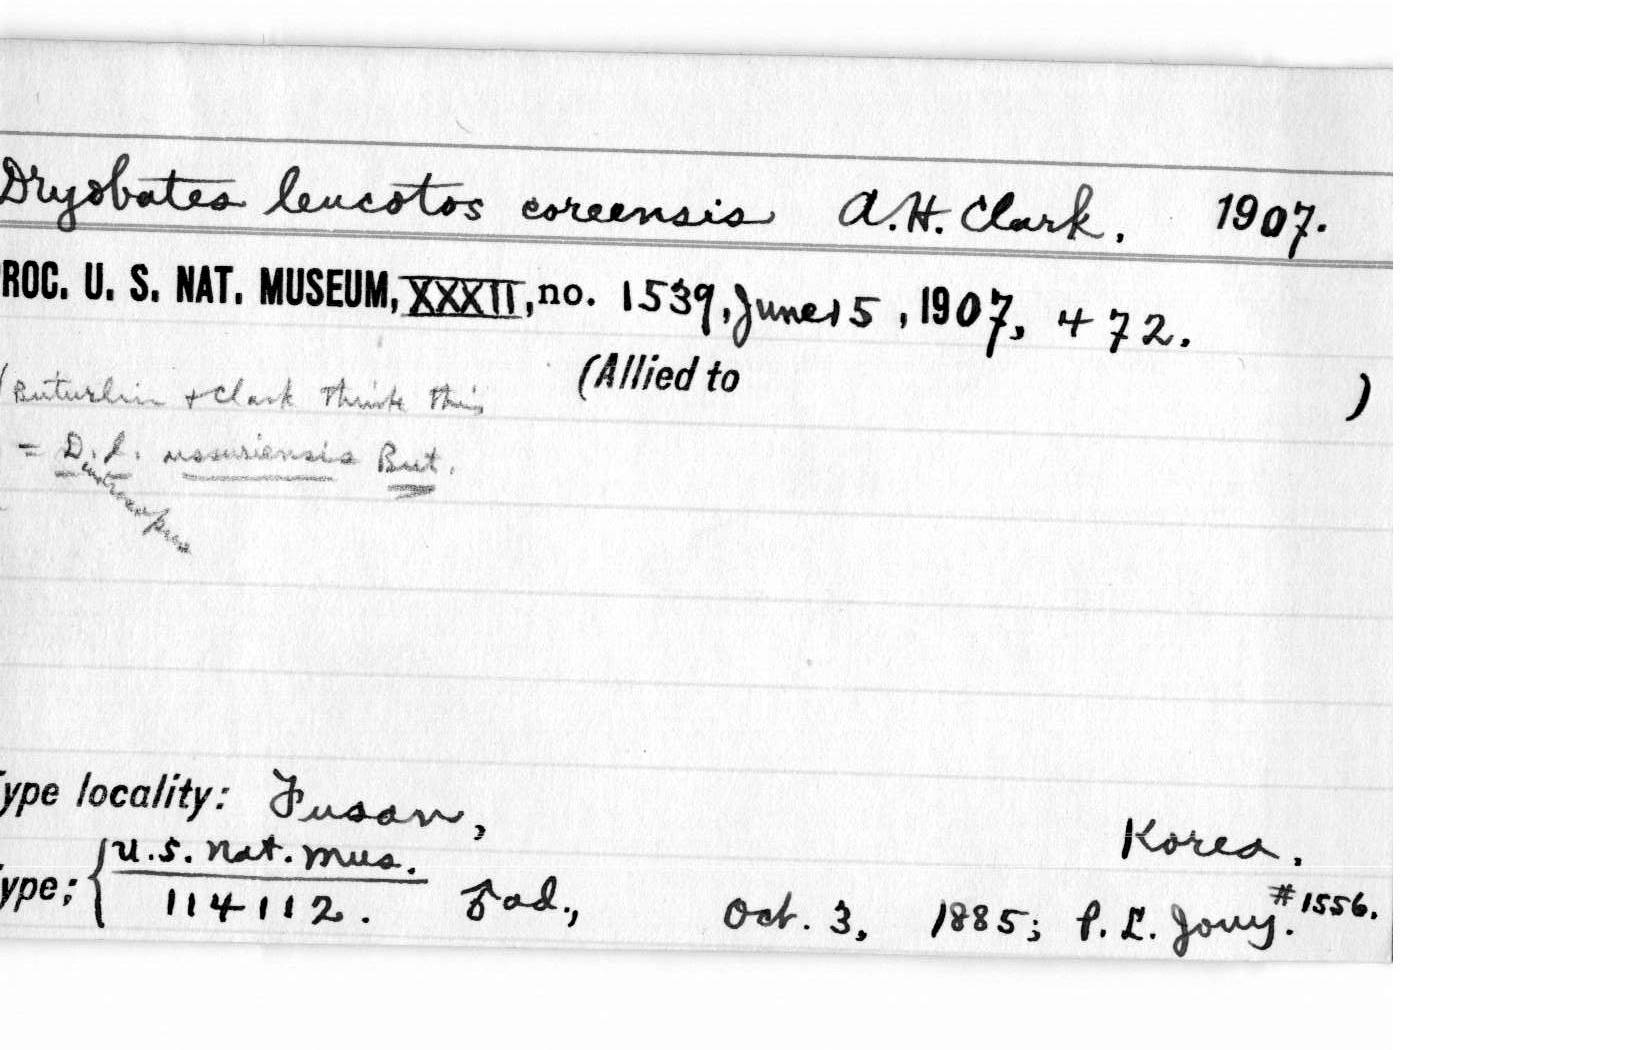 Dryobates leucotos coreensis A.H. Clark. 1907.
ROC. U. S. NAT. MUSEUM, XXXII, no. 1539, June 15, 1907, 472.
(Allied to )
(Buturlin + Clark think this
= D. l. ussuriensis But.
Type locality: Fusan, Korea.
ype; { U.S. Nat. Mus. #1556.
114112. ♂ ad., Oct. 3, 1885; P. L. Jouy.